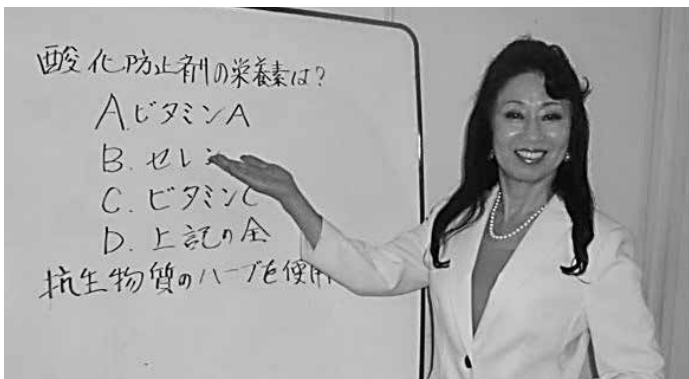 酸化防止剤の栄養素は?
A.ビタミンA
B.セレン
C.ビタミンC
D.上記の全
抗生物質のハーブを使用